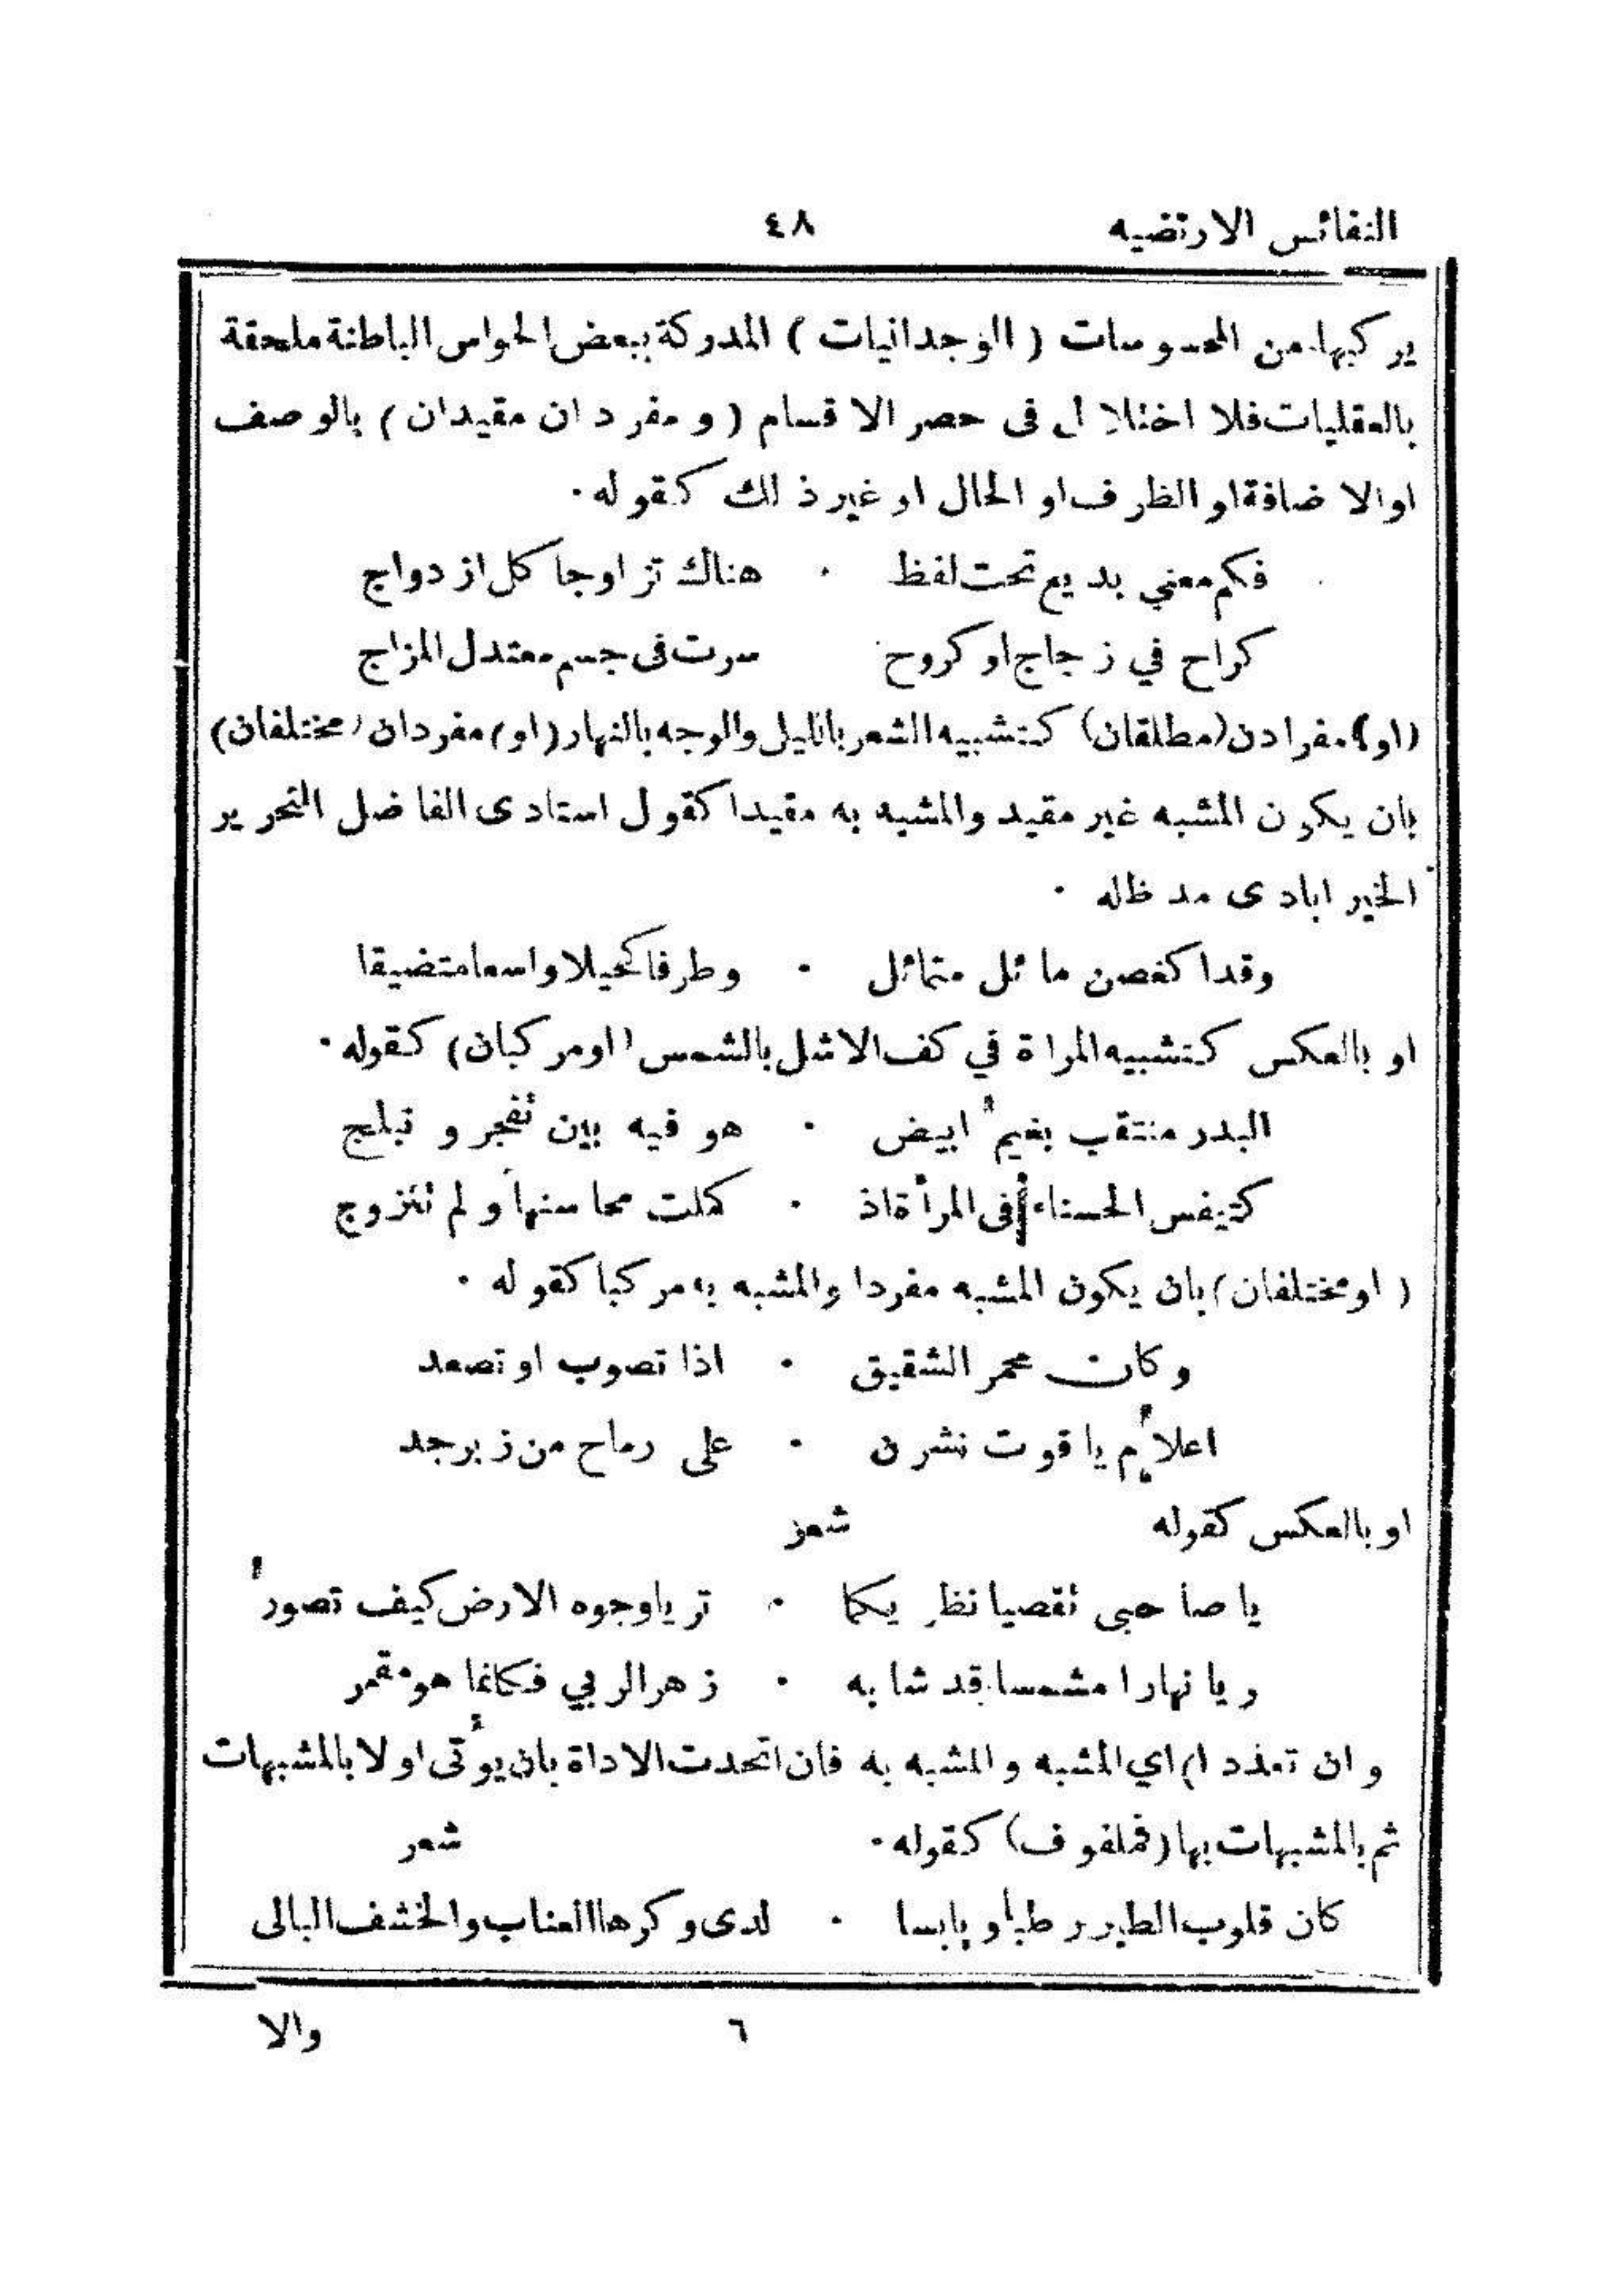 النفائس الارتضيه ٤٨
يركبها من المحسوسات ( الوجدانيات ) المدركة ببعض الحواس الباطنة ملحقة
بالعقليات فلا اختلال فى حصر الاقسام ( و مفردان مقيدان ) بالوصف
او الاضافة او الظرف او الحال او غير ذلك كقوله ٠
فكم معني بديع تحت لفظ ٠ هناك تزاوجا كل ازدواج
كراح في زجاج او كروح سرت فى جسم معتدل المزاج
( او ) مفرادن (مطلقان) كتشبيه الشعر بالليل والوجه بالنهار (او) مفردان (مختلفان)
بان يكون المشبه غير مقيد والمشبه به مقيدا كقول استادى الفاضل التحرير
الخير ابادى مد ظله ٠
وقدا كغصن مائل متمائل ٠ وطرفا كحيلا واسعا متضيقا
او بالعكس كتشبيه المراة في كف الاشل بالشمس ( او مركبان ) كقوله ٠
البدر منتقب بغيم ابيض ٠ هو فيه بين تفجر و تبلج
كتنفس الحسناء فى المرأة اذ ٠ كملت محاسنها و لم تتزوج
( او مختلفان ) بان يكون المشبه مفردا والمشبه به مركبا كقوله ٠
وكان محمر الشقيق ٠ اذا تصوب او تصعد
اعلام ياقوت نشرن ٠ على رماح من زبرجد
او بالعكس كقوله شعر
يا صاحبى تقصيا نظريكما ٠ تريا وجوه الارض كيف تصور
ريا نهارا مشمسا قد شابه ٠ زهر الربي فكانما هو مقمر
و ان تعدد ا) اي المشبه و المشبه به فان اتحدت الاداة بان يؤتى اولا بالمشبهات
ثم بالمشبهات بها (فملفوف) كقوله ٠ شعر
كان قلوب الطير رطبا و يابسا ٠ لدى وكرها العناب والخشف البالى
٦ والا